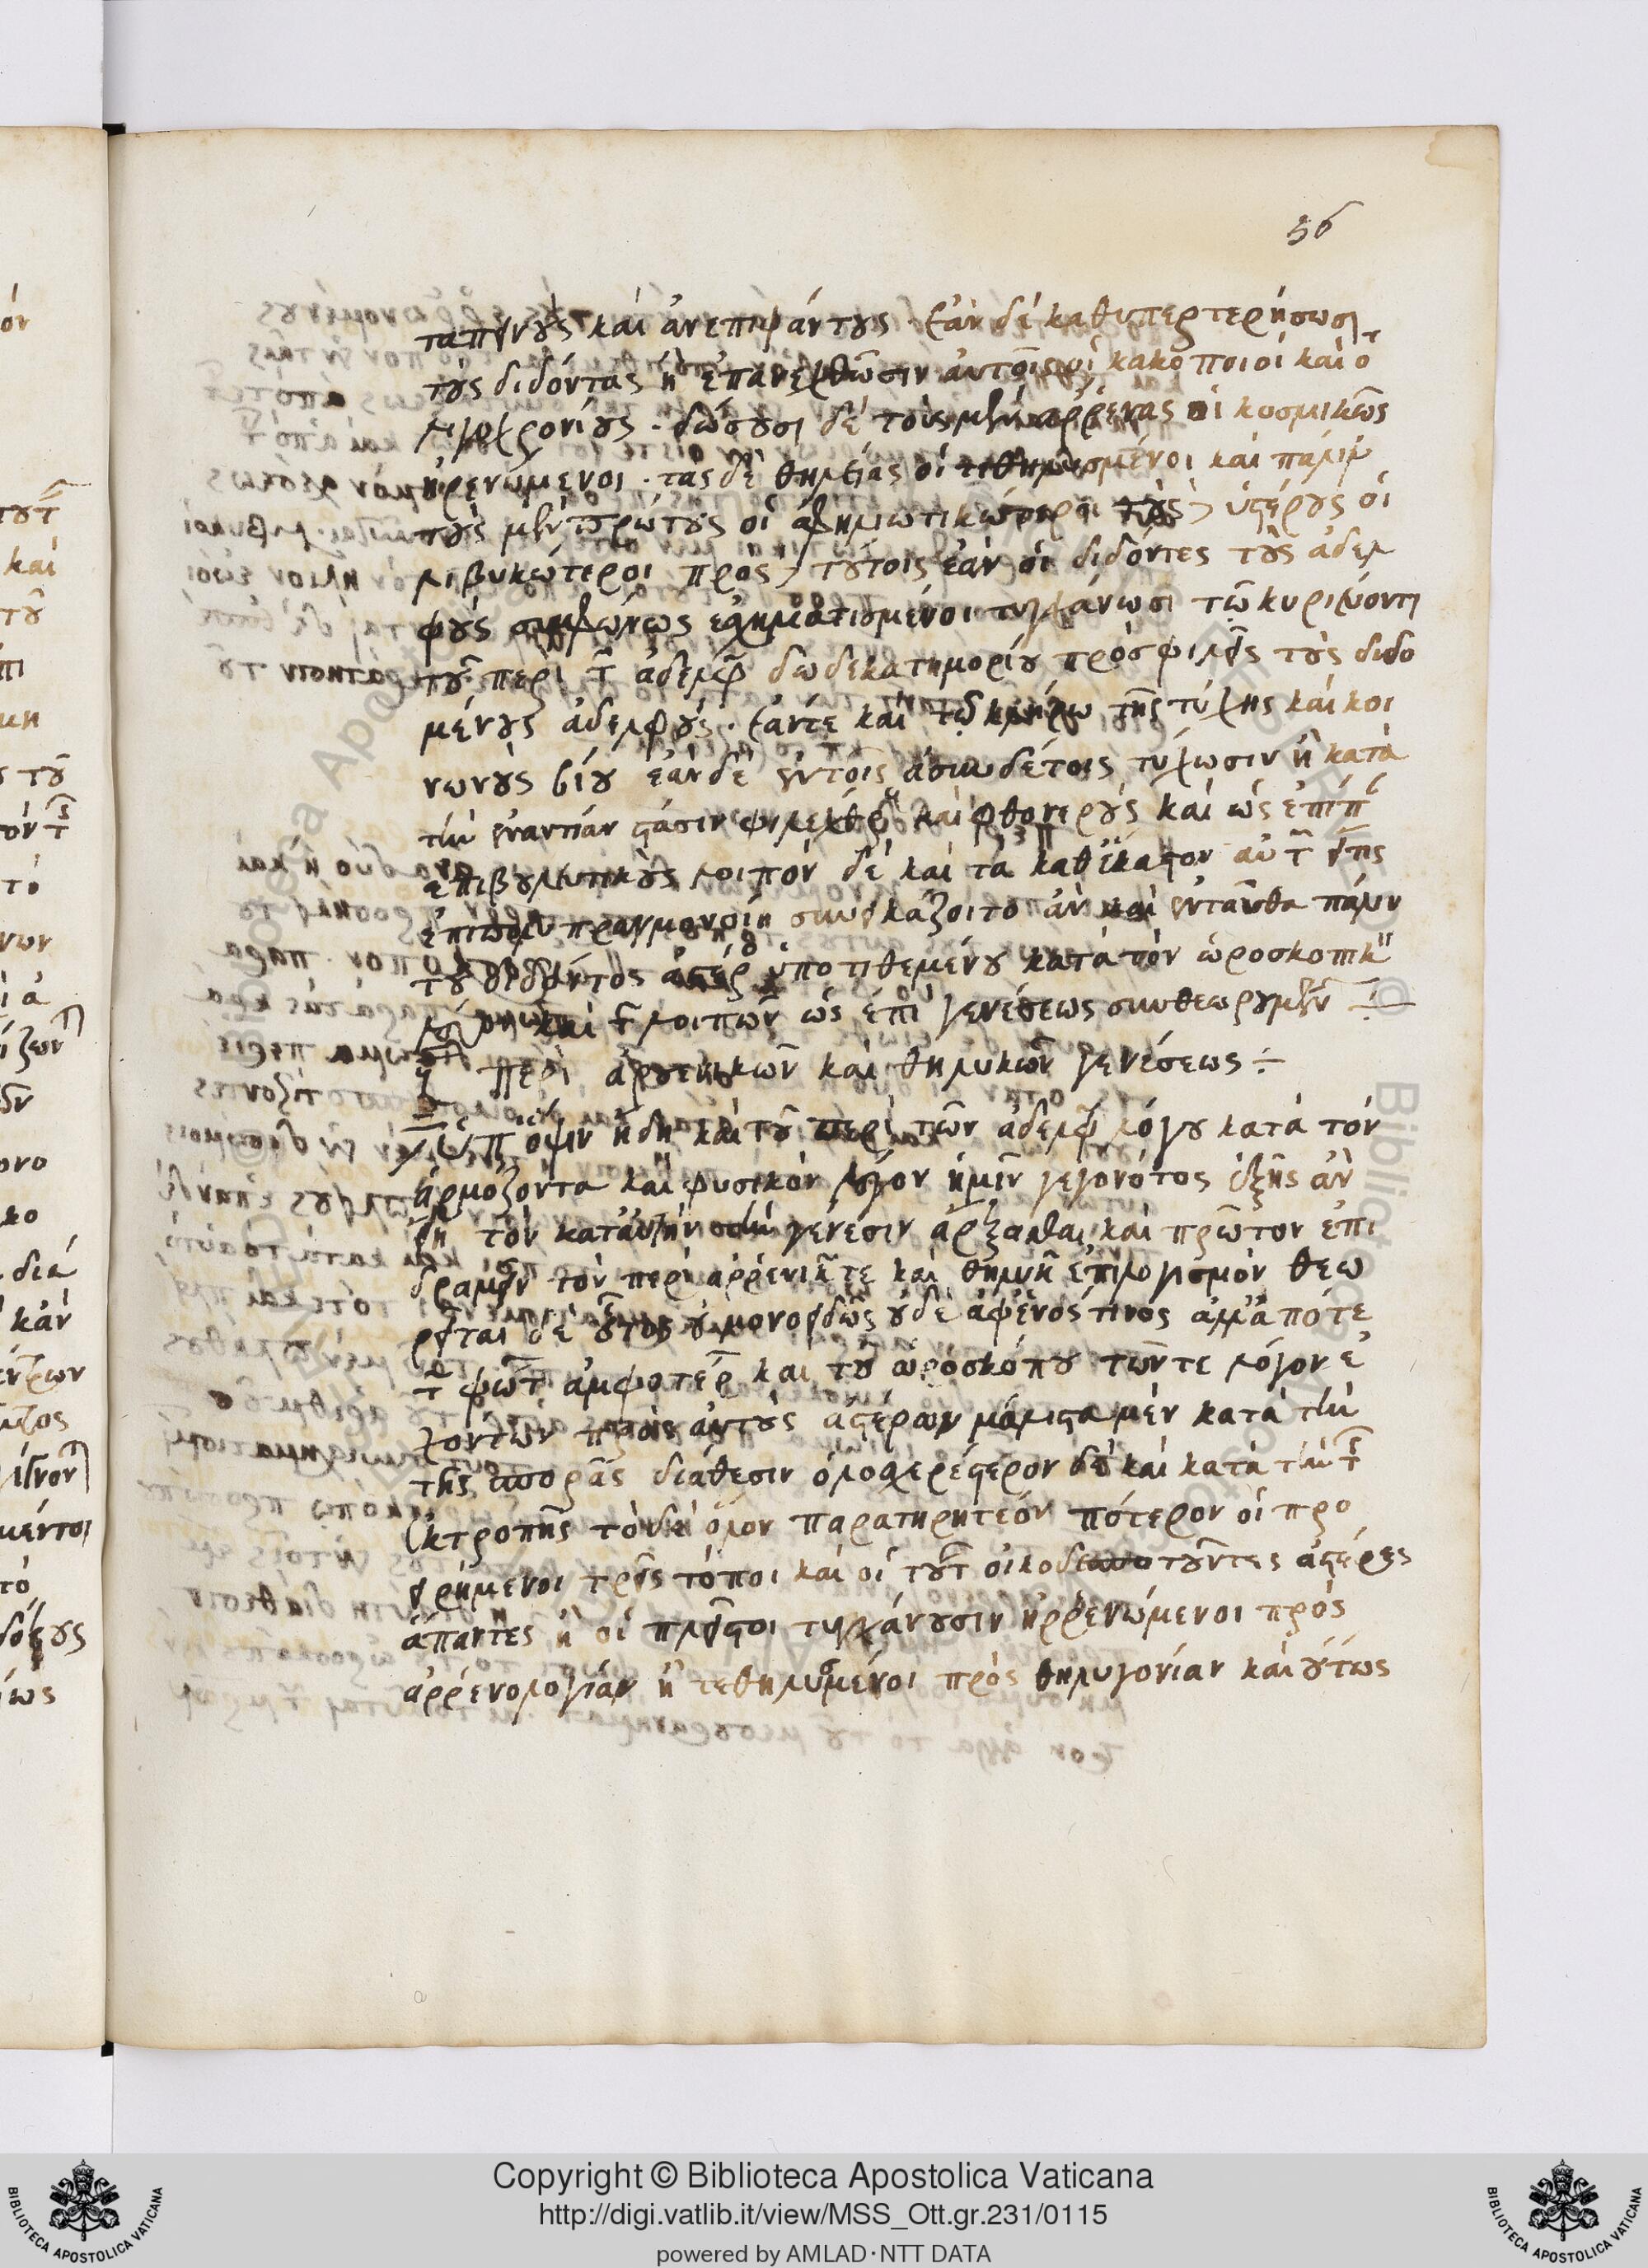 56
ταπεινοὺς καὶ ἀνεπιφάντους · ἐὰν δὲ καθυπερτερήσωσι
τοὺς διδόντας ἢ ἐπανενεχθῶσιν αὐτοῖς οἱ κακοποιοὶ καὶ ὀ
λιγοχρονίους · δώσουσι δὲ τοὺς μὲν ἄρρενας οἱ κοσμικῶς
ἠρενώμενοι · τὰς δὲ θηλείας οἱ τεθηλυσμένοι καὶ πάλιν
τοὺς μὲν πρώτους οἱ ἀπηλιωτικώτεροι τοὺς δὲ ὑστέρους οἱ
λιβυκώτεροι πρὸς δὲ τούτοις ἐὰν οἱ διδόντες τοὺς ἀδελ
φοὺς συμφώνως ἐσχηματισμένοι τυγχάνωσι τῷ κυριεύοντι
τοῦ περὶ τῶν ἀδελφῶν δωδεκατημορίου προσφιλεῖς τοὺς διδο
μένους ἀδελφούς · ἐάν τε καὶ τῷ κλήρῳ τῆς τύχης καὶ κοι
νωνοὺς βίου ἐὰν δὲ ἐν τοῖς ἀσυνδέτοις τύχωσιν ἢ κατὰ
τὴν ἐναντίαν στάσιν φιλέχθρους καὶ φθονεροὺς καὶ ὡς ἐπὶ π
ἐπιβουλευτικοὺς λοιπὸν δὲ καὶ τὰ καθ' ἕκαστον αὐτῶν εἴ τις
ἐπιπολυπραγμονοίη συνεικάζοιτο ἂν καὶ ἐνταῦθα πάλιν
τοῦ διδόντος ἀστέρος ὑποτιθεμένου κατὰ τὸν ὡροσκοπικ
λόγον καὶ τῶν λοιπῶν ὡς ἐπὶ γενέσεως συνθεωρουμένων
Περὶ ἀρσενικῶν καὶ θηλυκῶν γενέσεως
Ὑπ' ὄψιν ἤδη καὶ τοῦ περὶ τῶν ἀδελφῶν λόγου κατὰ τὸν
ἁρμόζοντα καὶ φυσικὸν λόγον ἡμῖν γεγονότος ἑξῆς ἂν
εἴη τὸν κατ' αὐτὴν τὴν γένεσιν ἄρξασθαι καὶ πρῶτον ἐπι
δραμεῖν τὸν περὶ ἀρρενικῶν τε καὶ θηλυκῶν ἐπιλογισμὸν θεω
ρεῖται δὲ οὗτος οὐ μονοειδῶς οὐδὲ ἀφ' ἑνός τινος ἀλλ' ἀπό τε
τῶν φώτων ἀμφοτέρων καὶ τοῦ ὡροσκόπου τῶν τε λόγον ἐ
χόντων πρὸς αὐτοὺς ἀστέρων μάλιστα μὲν κατὰ τὴν
τῆς σπορᾶς διάθεσιν ὁλοσχερέστερον δὲ καὶ κατὰ τὴν τῆς
ἐκτροπῆς τὸ δὲ ὅλον παρατηρητέον πότερον οἱ προ
ειρημένοι τρεῖς τόποι καὶ οἱ τούτων οἰκοδεσποτοῦντες ἀστέρες
ἅπαντες ἢ οἱ πλεῖστοι τυγχάνουσιν ἠρρενωμένοι πρὸς
ἀρρενολογίαν ἢ τεθηλυσμένοι πρὸς θηλυγονίαν καὶ οὕτως
Copyright © Biblioteca Apostolica Vaticana
http://digi.vatlib.it/view/MSS_Ott.gr.231/0115
powered by AMLAD·NTT DATA
BIBLIOTECA APOSTOLICA VATICANA
BIBLIOTECA APOSTOLICA VATICANA